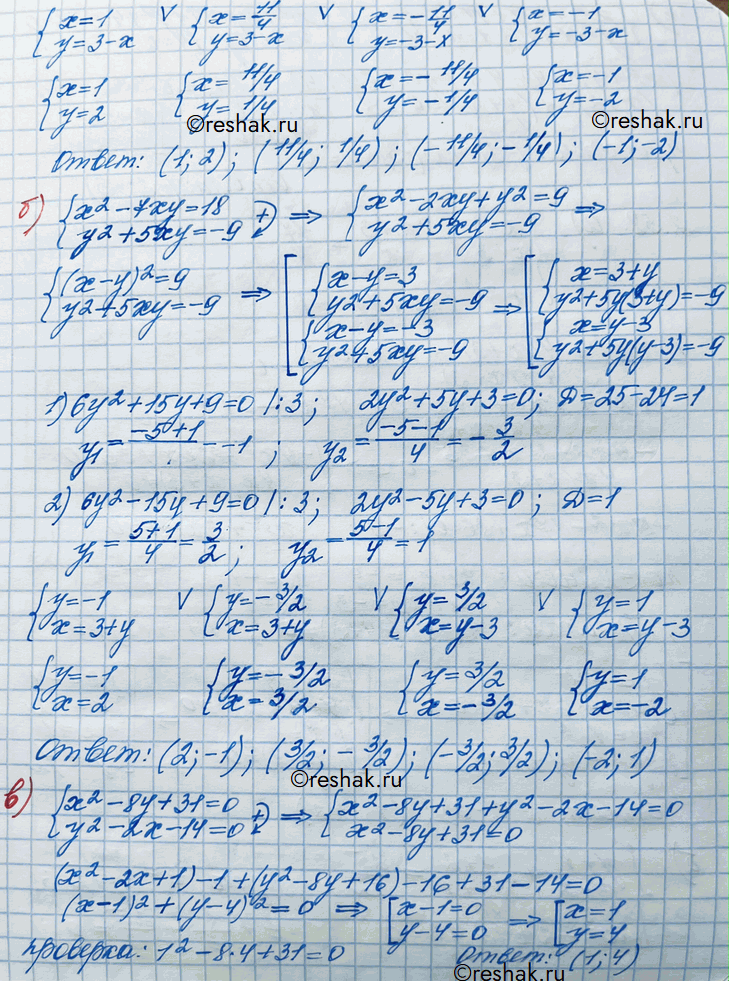 {x=1 y=3-x ∨ {x=11/4 y=3-x ∨ {x=-11/4 y=-3-x ∨ {x=-1 y=-3-x
{x=1 y=2 {x=11/4 y=1/4 {x=-11/4 y=-1/4 {x=-1 y=-2
©reshak.ru ©reshak.ru
Ответ: (1; 2); (11/4; 1/4); (-11/4; -1/4); (-1; -2)
б) {x²-7xy=18 y²+5xy=-9 (+) ⇒ {x²-2xy+y²=9 y²+5xy=-9 ⇒
{(x-y)²=9 y²+5xy=-9 ⇒ [{x-y=3 y²+5xy=-9 {x-y=-3 y²+5xy=-9 ⇒ [{x=3+y y²+5y(3+y)=-9 {x=y-3 y²+5y(y-3)=-9
1) 6y²+15y+9=0 |:3; 2y²+5y+3=0; D=25-24=1
y₁ = (-5+1)/ = -1; y₂ = (-5-1)/4 = -3/2
2) 6y²-15y+9=0 |:3; 2y²-5y+3=0; D=1
y₁ = (5+1)/4 = 3/2; y₂ = (5-1)/4 = 1
{y=-1 x=3+y ∨ {y=-3/2 x=3+y ∨ {y=3/2 x=y-3 ∨ {y=1 x=y-3
{y=-1 x=2 {y=-3/2 x=3/2 {y=3/2 x=-3/2 {y=1 x=-2
Ответ: (2; -1); (3/2; -3/2); (-3/2; 3/2); (-2; 1)
©reshak.ru
в) {x²-8y+31=0 y²-2x-14=0 (+) ⇒ {x²-8y+31+y²-2x-14=0 x²-8y+31=0
(x²-2x+1)-1+(y²-8y+16)-16+31-14=0
(x-1)²+(y-4)²=0 ⇒ [x-1=0 y-4=0 ⇒ [x=1 y=4
проверка: 1²-8·4+31=0 Ответ: (1; 4)
©reshak.ru